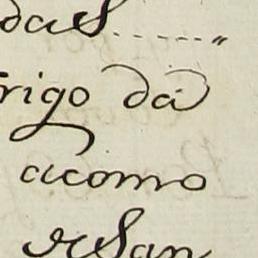 das......."
rigo da
acomo